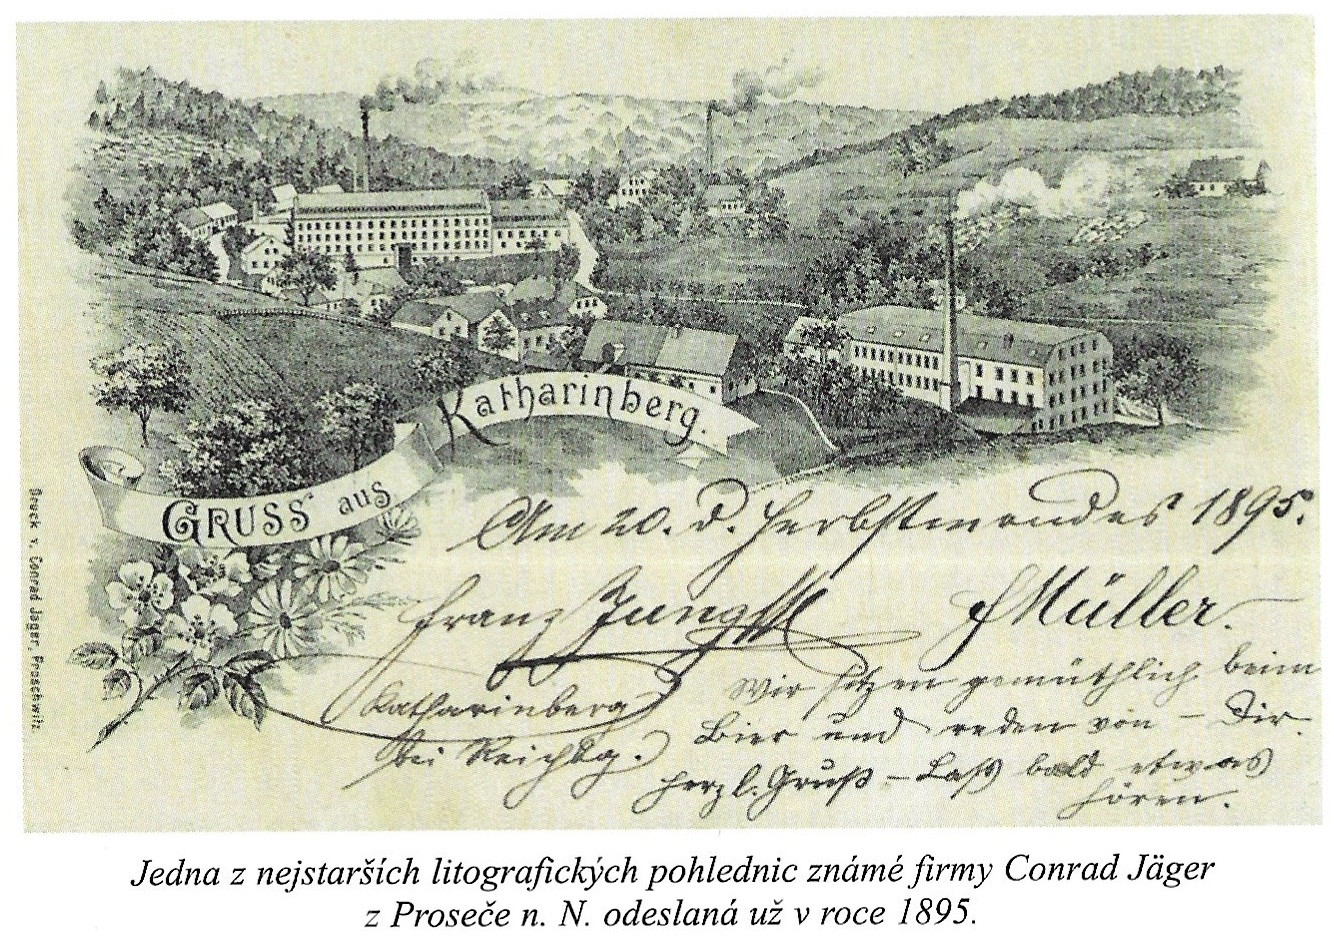 Katharinberg.
GRUSS aus
Druck v. Conrad Jäger, Proschwitz.
Am 20. d. Herbstmondes 1895.
Franz Jungst FMüller.
Katharinberg
bei Reichbg.
Wir sitzen gemüthlich beim
Bier und reden von – Dir.
herzl. Gruß – Laß bald etwas
hören.
Jedna z nejstarších litografických pohlednic známé firmy Conrad Jäger
z Proseče n. N. odeslaná už v roce 1895.